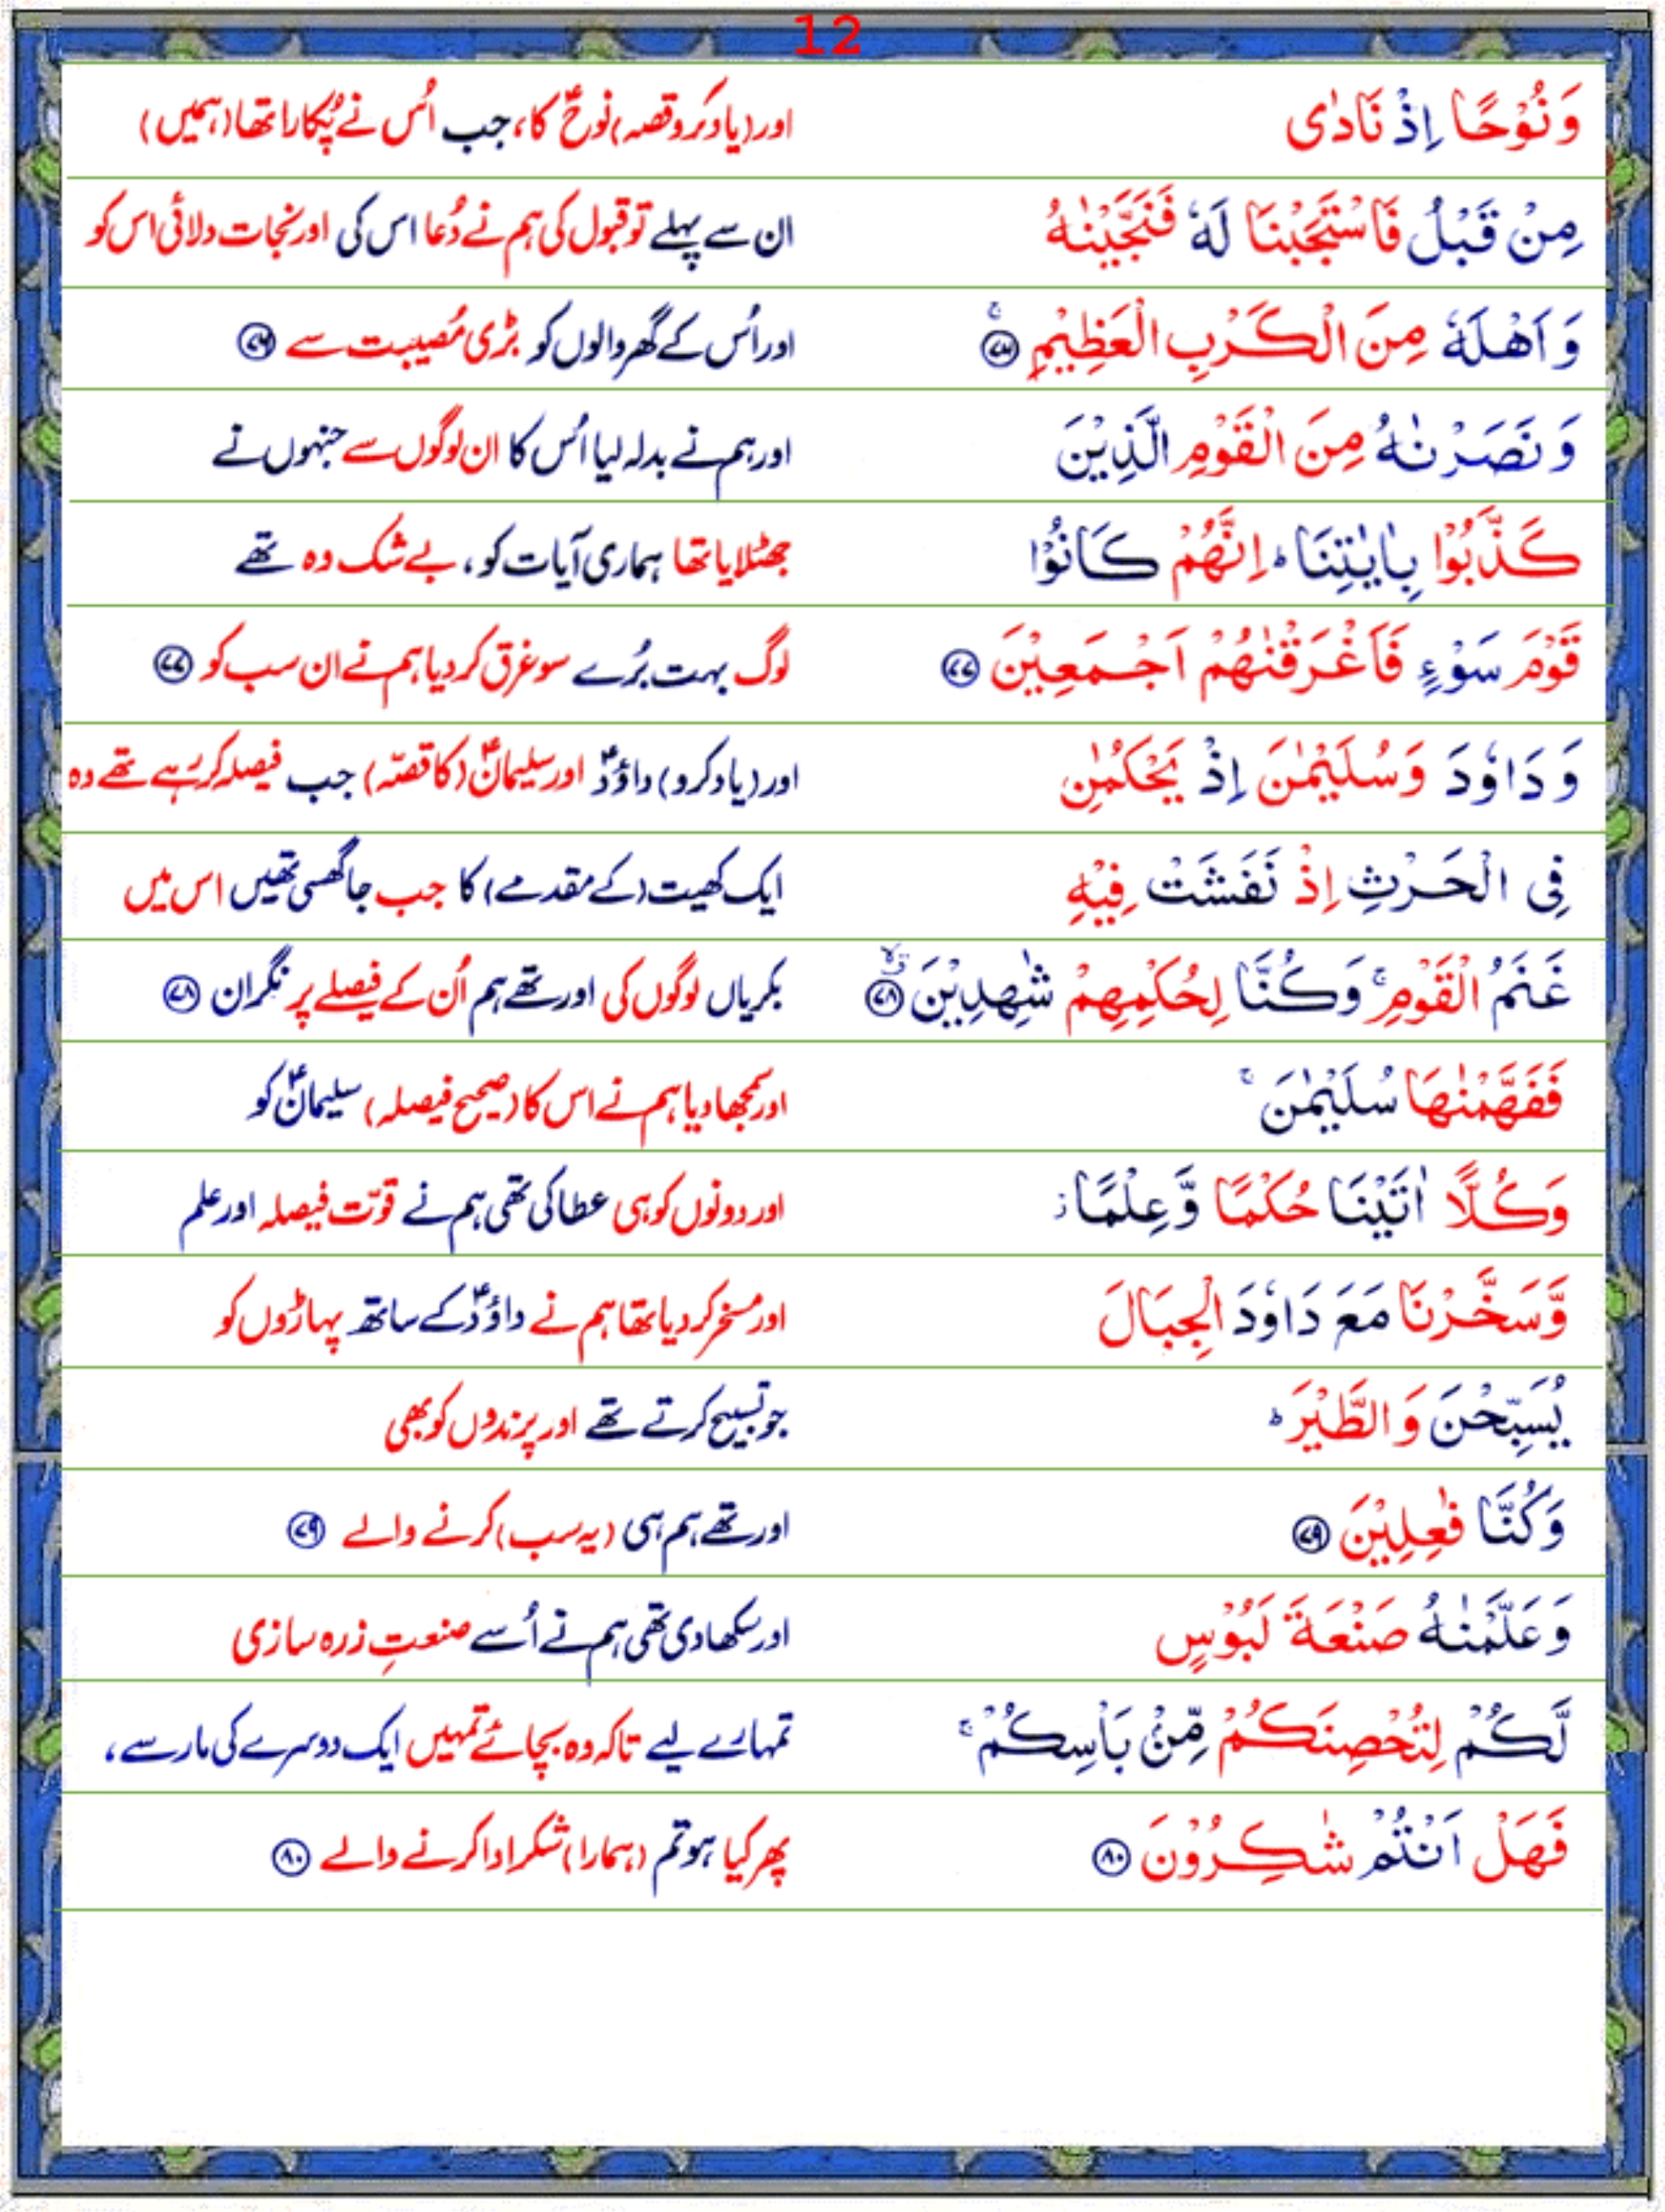 12
وَنُوْحًا اِذْ نَادٰى اور(یاد کرو قصہ)نوحؑ کا، جب اُس نے پُکارا تھا(ہمیں)
مِنْ قَبْلُ فَاسْتَجَبْنَا لَهٗ فَنَجَّيْنٰهُ ان سے پہلے تو قبول کی ہم نے دُعا اس کی اور نجات دلائی اس کو
وَ اَهْلَهٗ مِنَ الْكَرْبِ الْعَظِيْمِ ۚ﴿۷۶﴾ اور اُس کے گھر والوں کو بڑی مُصیبت سے ﴿۷۶﴾
وَ نَصَرْنٰهُ مِنَ الْقَوْمِ الَّذِيْنَ اور ہم نے بدلہ لیا اُس کا ان لوگوں سے جنہوں نے
كَذَّبُوْا بِاٰيٰتِنَا ؕ اِنَّهُمْ كَانُوْا جھٹلایا تھا ہماری آیات کو، بے شک وہ تھے
قَوْمَ سَوْءٍ فَاَغْرَقْنٰهُمْ اَجْمَعِيْنَ ﴿۷۷﴾ لوگ بہت بُرے سو غرق کر دیا ہم نے ان سب کو ﴿۷۷﴾
وَ دَاوٗدَ وَ سُلَيْمٰنَ اِذْ يَحْكُمٰنِ اور(یاد کرو) داؤدؑ اور سلیمانؑ (کا قصّہ) جب فیصلہ کر رہے تھے وہ
فِى الْحَرْثِ اِذْ نَفَشَتْ فِيْهِ ایک کھیت(کے مقدمے) کا جب جا گھسی تھیں اس میں
غَنَمُ الْقَوْمِ ۚ وَ كُنَّا لِحُكْمِهِمْ شٰهِدِيْنَ ۙ﴿۷۸﴾ بکریاں لوگوں کی اور تھے ہم اُن کے فیصلے پر نگران ﴿۷۸﴾
فَفَهَّمْنٰهَا سُلَيْمٰنَ ۚ اور سمجھا دیا ہم نے اس کا (صحیح فیصلہ) سلیمانؑ کو
وَ كُلًّا اٰتَيْنَا حُكْمًا وَّ عِلْمًا ؗ اور دونوں کو ہی عطا کی تھی ہم نے قوّت فیصلہ اور علم
وَّ سَخَّرْنَا مَعَ دَاوٗدَ الْجِبَالَ اور مسخر کر دیا تھا ہم نے داؤدؑ کے ساتھ پہاڑوں کو
يُسَبِّحْنَ وَ الطَّيْرَ ؕ جو تسبیح کرتے تھے اور پرندوں کو بھی
وَ كُنَّا فٰعِلِيْنَ ﴿۷۹﴾ اور تھے ہم ہی (یہ سب) کرنے والے ﴿۷۹﴾
وَ عَلَّمْنٰهُ صَنْعَةَ لَبُوْسٍ اور سکھا دی تھی ہم نے اُسے صنعتِ زرہ سازی
لَّكُمْ لِتُحْصِنَكُمْ مِّنْۢ بَاْسِكُمْ ۚ تمہارے لیے تاکہ وہ بچائے تمہیں ایک دوسرے کی مار سے،
فَهَلْ اَنْتُمْ شٰكِرُوْنَ ﴿۸۰﴾ پھر کیا ہو تم (ہمارا) شکر ادا کرنے والے ﴿۸۰﴾